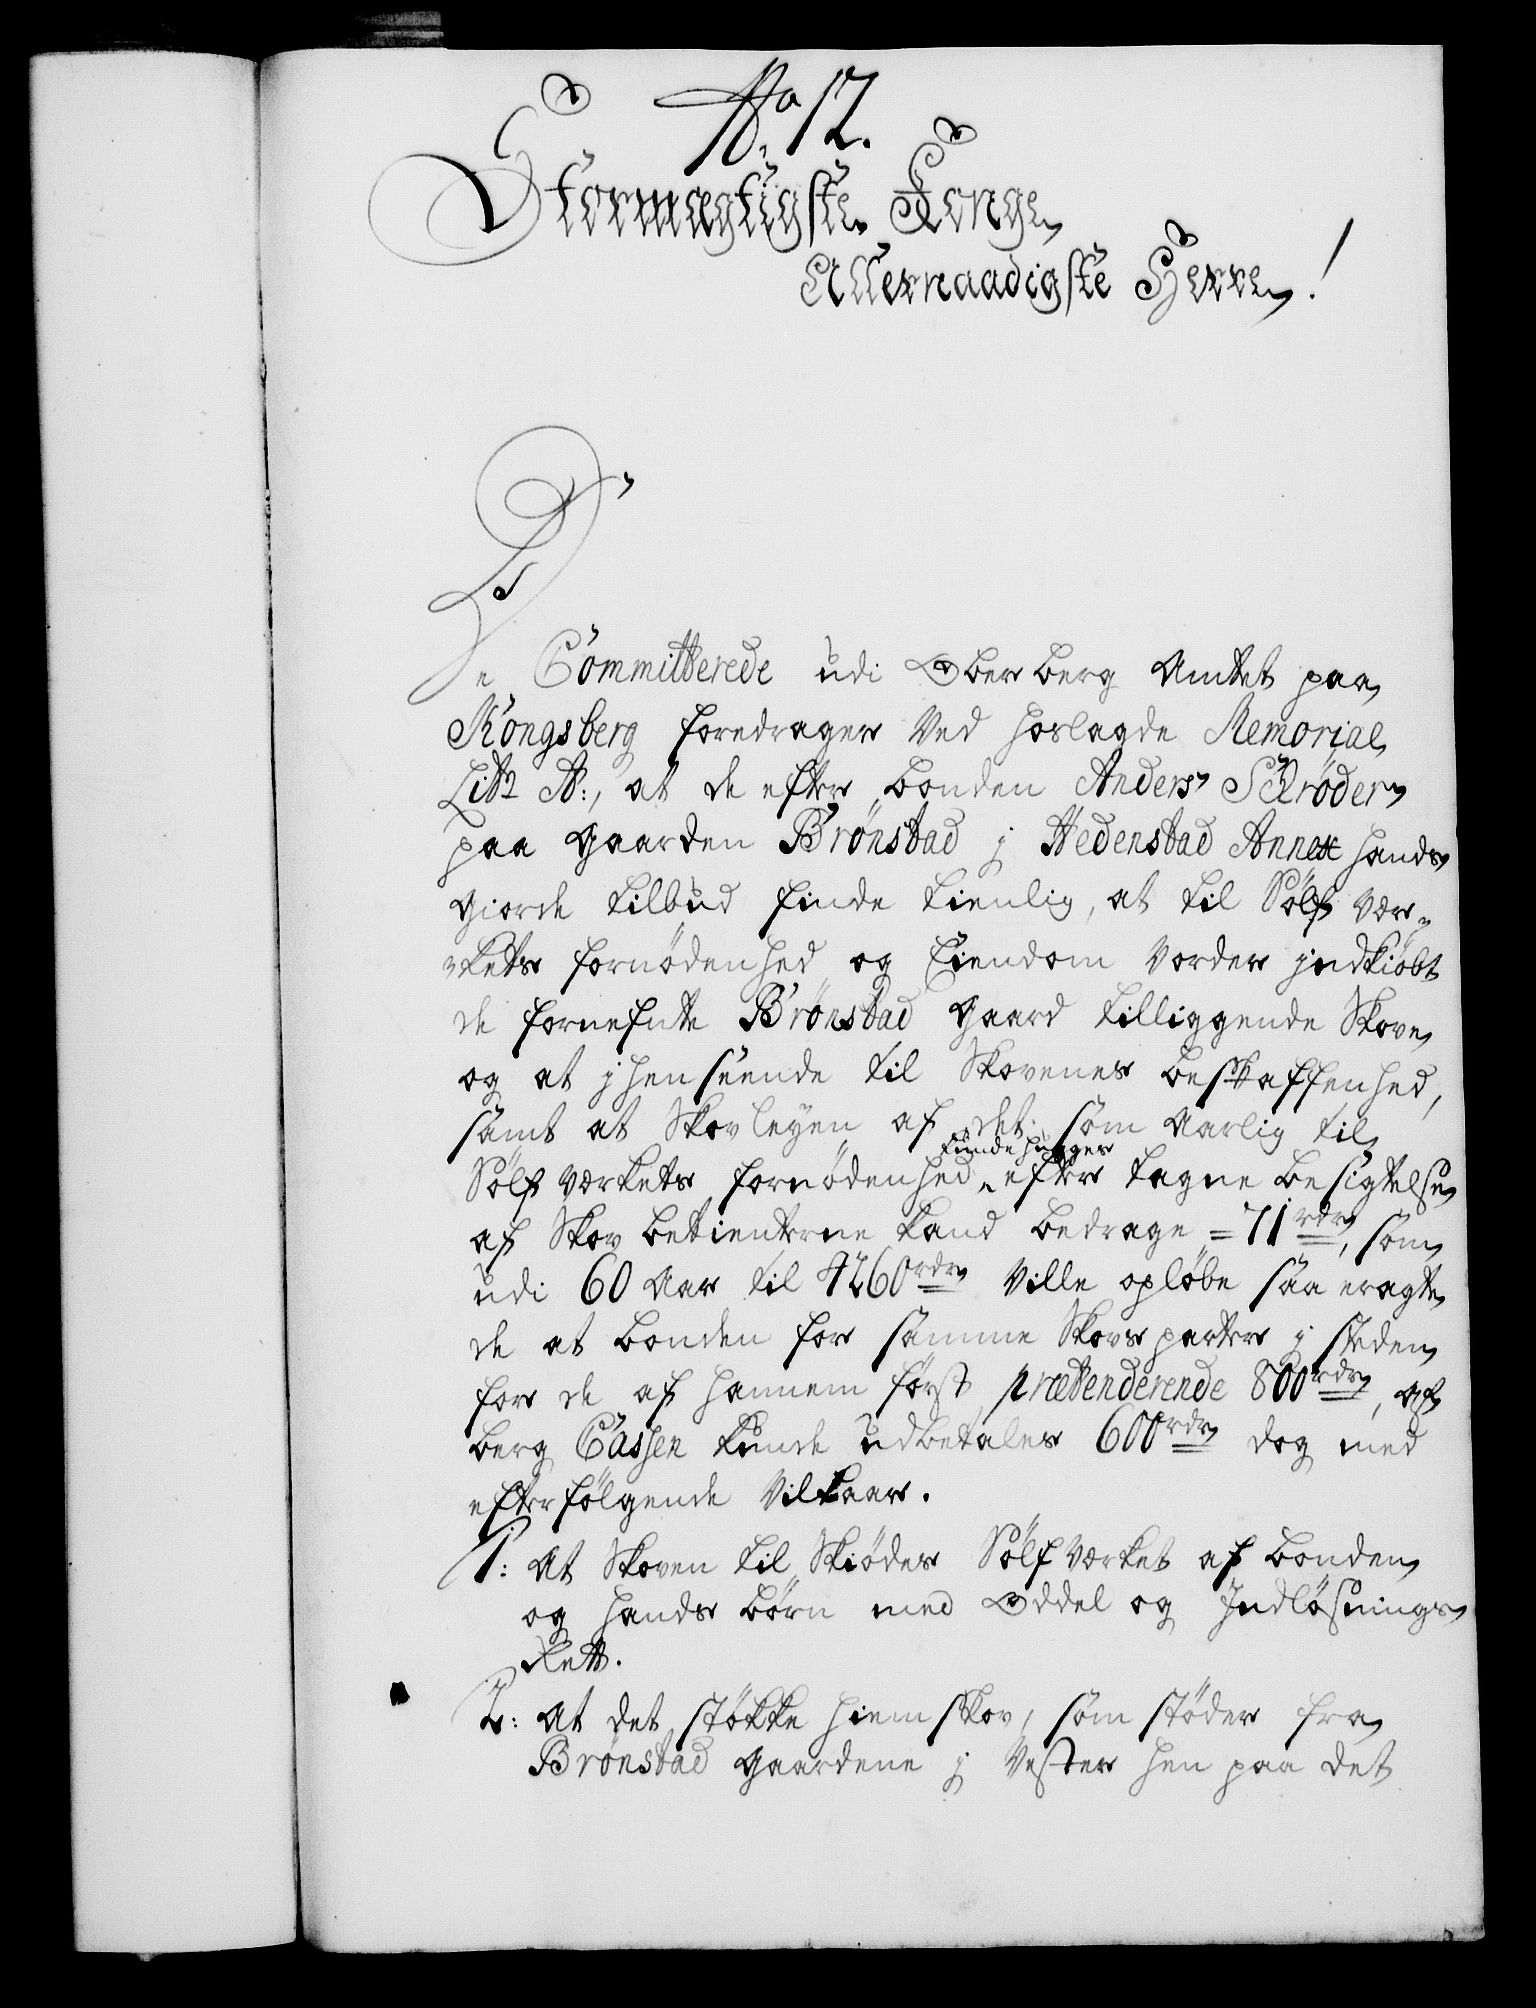 No 12.
Stormægtigste Konge,
Allernaadigste Herre!
De Committerede udi Ober berg Amtet paa
Kongsberg foredrager ved hoslagde Memorial
Litr A:, at de efter bonden Anders Schrøder
paa gaarden Brønstad j Hedenstad Annex hands
giorde tilbud finde tienlig, at til Sølf vær-
kets fornødenhed og Eiendom vorder jndkiøbt
de fornefnte Brønstad gaard tilliggende Skove,
og at j henseende til Skovenes beskaffenhed,
samt at Skovleyen af det som Aarlig til
kunde hugges
Sølf værkets fornødenhed efter tagne besigtelse
af Skov betienterne kand bedrage = 71 rdr, som
udi 60 Aar til 4260 rdr ville opløbe saa eragte
de at bonden for samme Skovs parter j steden
for de af hannem først prætenderende 800 rdr, af
berg Cassen kunde udbetales 600 rdr dog med
efterfølgende vilkaar.
1: At Skoven til Skiødes Sølfværket af bonden
og hands børn med Oddel og Jndløsnings
Rett.
2: at det støkke hiemskov, som støder fra
Brønstad gaardene j Vester hen paa det